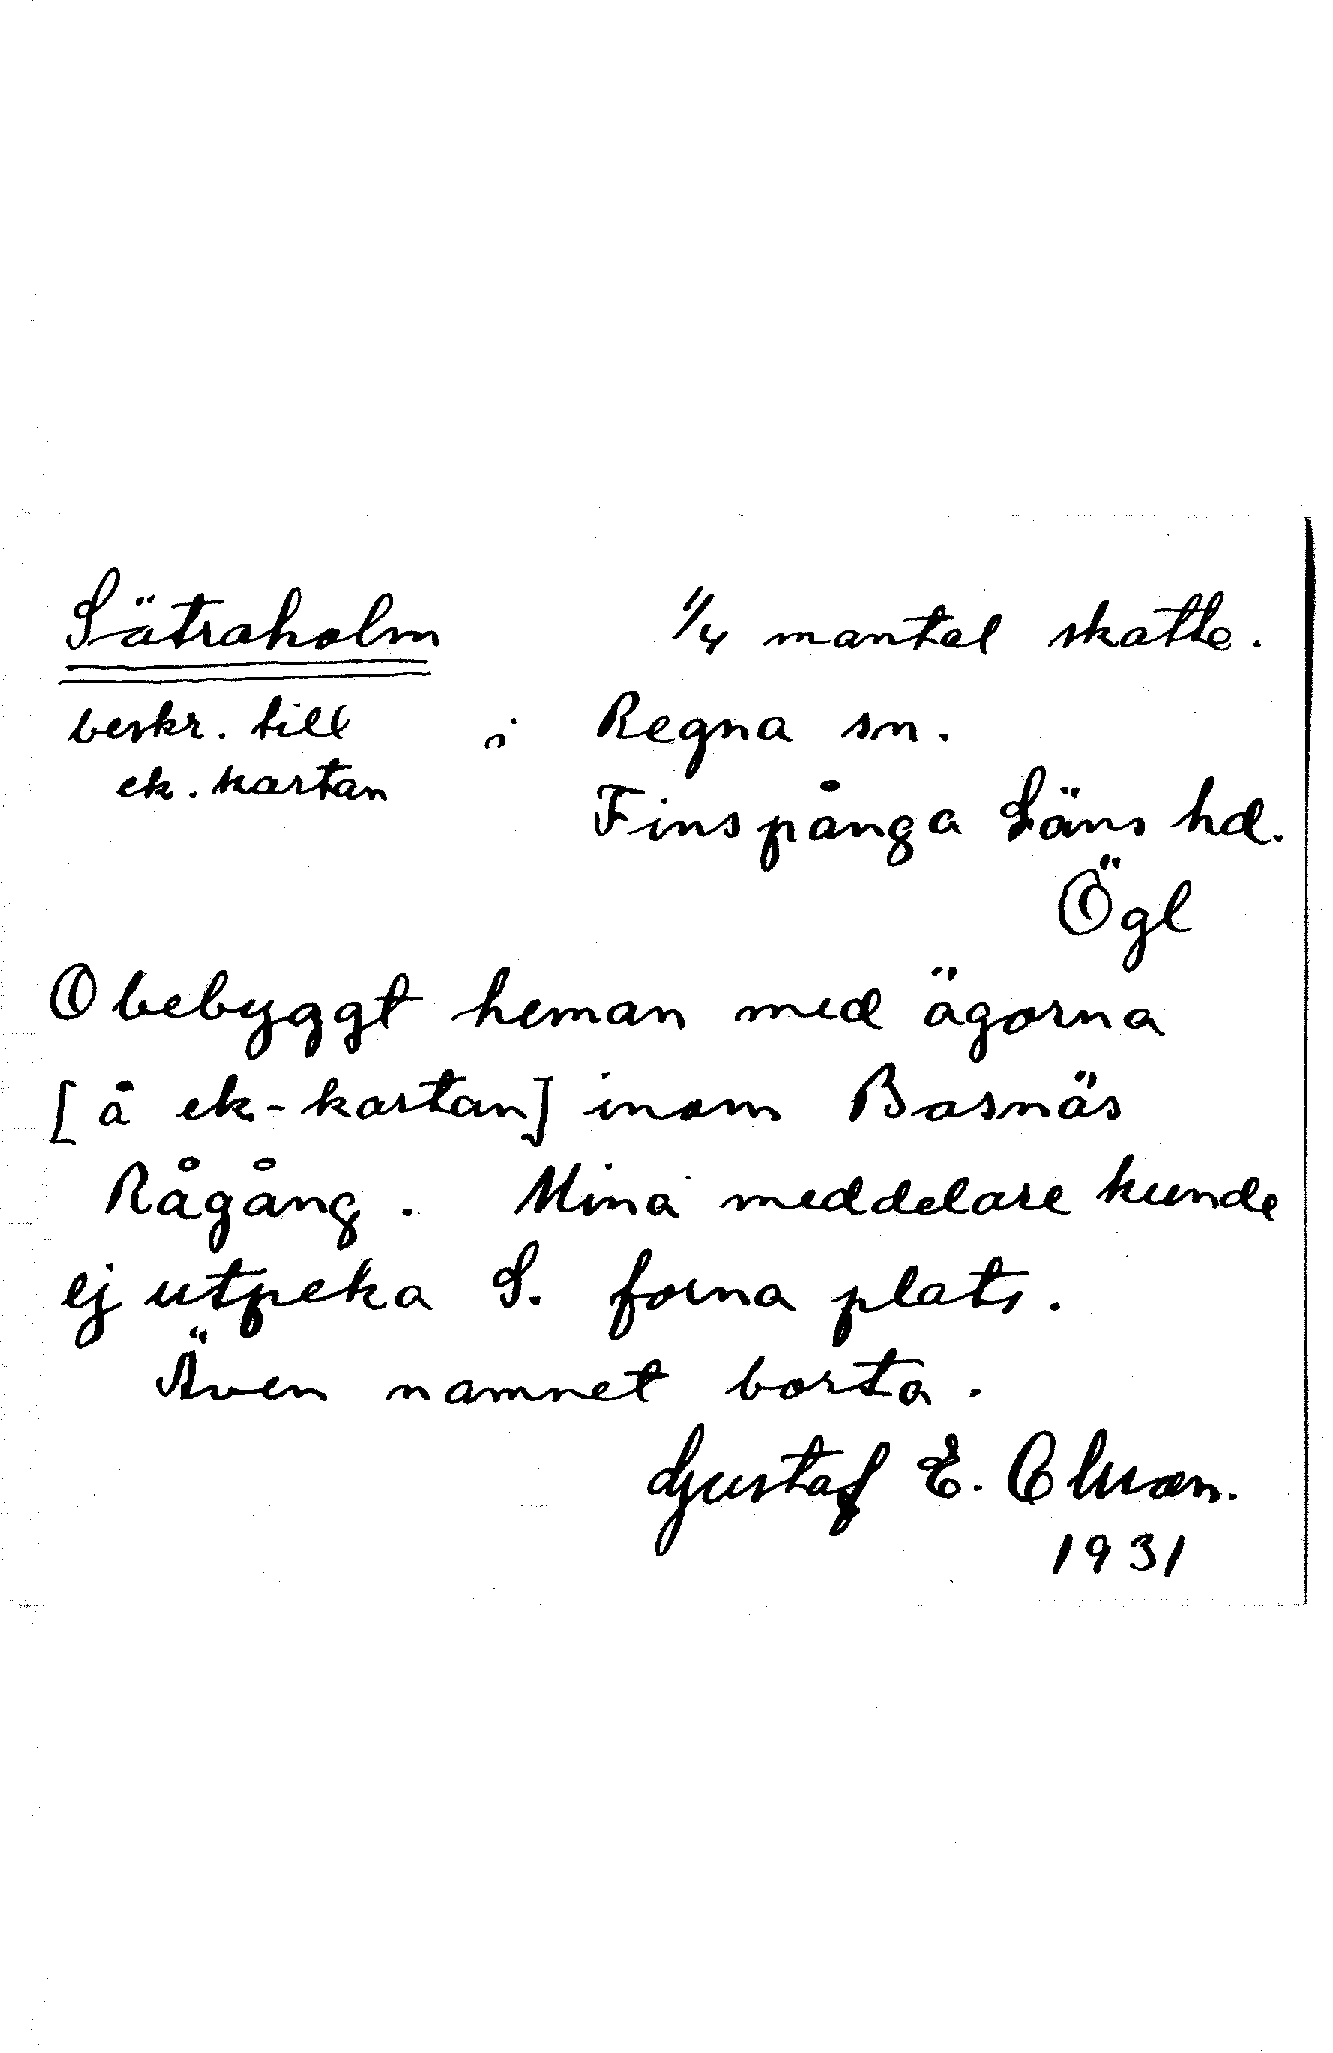 Sätraholm 1/4 mantal skatte.
beskr. till i Regna sn.
ek. kartan
Finspånga Läns hd.
Ögl
Obebyggt heman med ägorna
[å ek-kartan] inom Basnäs
Rågång. Mina meddelare kunde
ej utpeka S. forna plats.
Även namnet borta.
Gustaf E.
1931